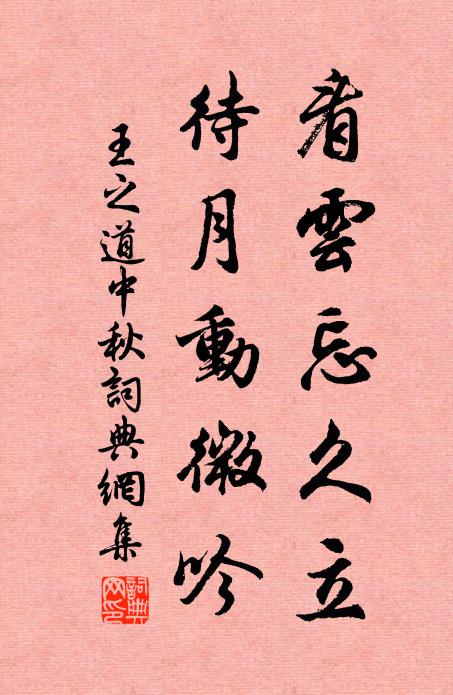 看雲忘久立
待月動微吟
王之道中秋詞典網集
詞典網印